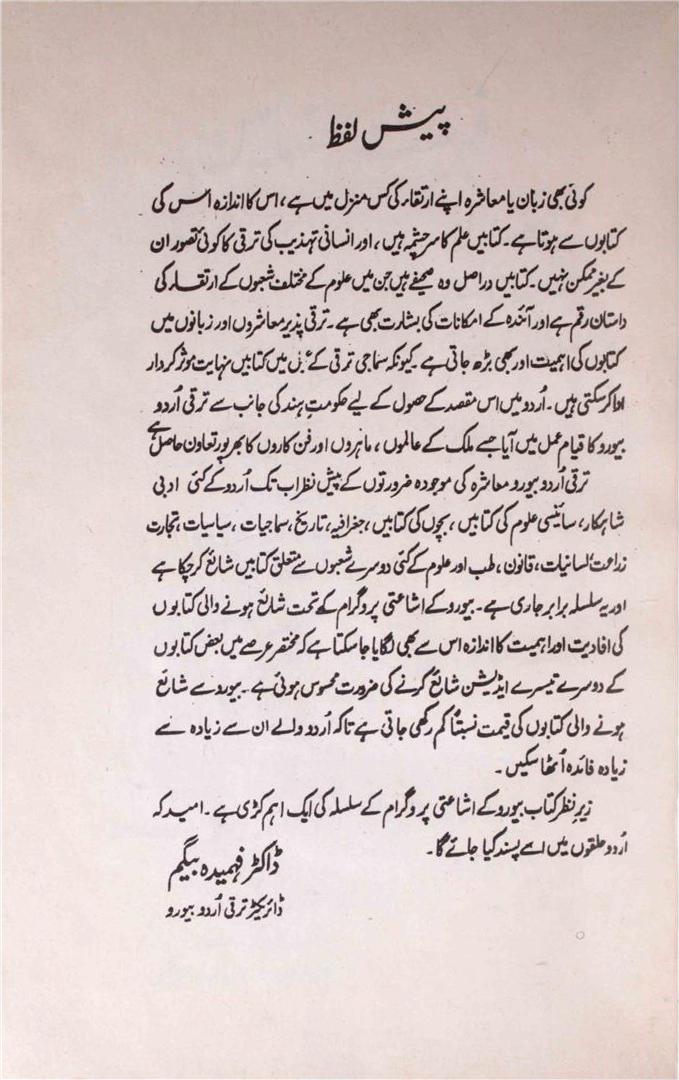 پیش لفظ
کوئی بھی زبان یا معاشرہ اپنے ارتقاء کی کس منزل میں ہے، اس کا اندازہ اس کی
کتابوں سے ہوتا ہے۔ کتابیں علم کا سرچشمہ ہیں، اور انسانی تہذیب کی ترقی کا کوئی تصور ان
کے بغیر ممکن نہیں۔ کتابیں دراصل وہ صحیفے ہیں جن میں علوم کے مختلف شعبوں کے ارتقاء کی
داستان رقم ہے اور آئندہ کے امکانات کی بشارت بھی ہے۔ ترقی پذیر معاشروں اور زبانوں میں
کتابوں کی اہمیت اور بھی بڑھ جاتی ہے۔ کیونکہ سماجی ترقی کے عمل میں کتابیں نہایت موثر کردار
ادا کر سکتی ہیں۔ اُردو میں اس مقصد کے حصول کے لیے حکومتِ ہند کی جانب سے ترقی اُردو
بیورو کا قیام عمل میں آیا جسے ملک کے عالموں، ماہروں اور فن کاروں کا بھرپور تعاون حاصل ہے
ترقی اُردو بیورو معاشرہ کی موجودہ ضرورتوں کے پیش نظر اب تک اُردو کے کئی ادبی
شاہکار، سائنسی علوم کی کتابیں، بچوں کی کتابیں، جغرافیہ، تاریخ، سماجیات، سیاسیات، تجارت
زراعت، لسانیات، قانون، طب اور علوم کے کئی دوسرے شعبوں سے متعلق کتابیں شائع کر چکا ہے
اور یہ سلسلہ برابر جاری ہے۔ بیورو کے اشاعتی پروگرام کے تحت شائع ہونے والی کتابوں
کی افادیت اور اہمیت کا اندازہ اس سے بھی لگایا جا سکتا ہے کہ مختصر عرصے میں بعض کتابوں
کے دوسرے تیسرے ایڈیشن شائع کرنے کی ضرورت محسوس ہوئی ہے۔ بیورو سے شائع
ہونے والی کتابوں کی قیمت نسبتاً کم رکھی جاتی ہے تاکہ اُردو والے ان سے زیادہ سے
زیادہ فائدہ اُٹھا سکیں۔
زیرِ نظر کتاب بیورو کے اشاعتی پروگرام کے سلسلہ کی ایک اہم کڑی ہے۔ امید کہ
اُردو حلقوں میں اسے پسند کیا جائے گا۔
ڈاکٹر فہمیدہ بیگم
ڈائریکٹر ترقی اُردو بیورو